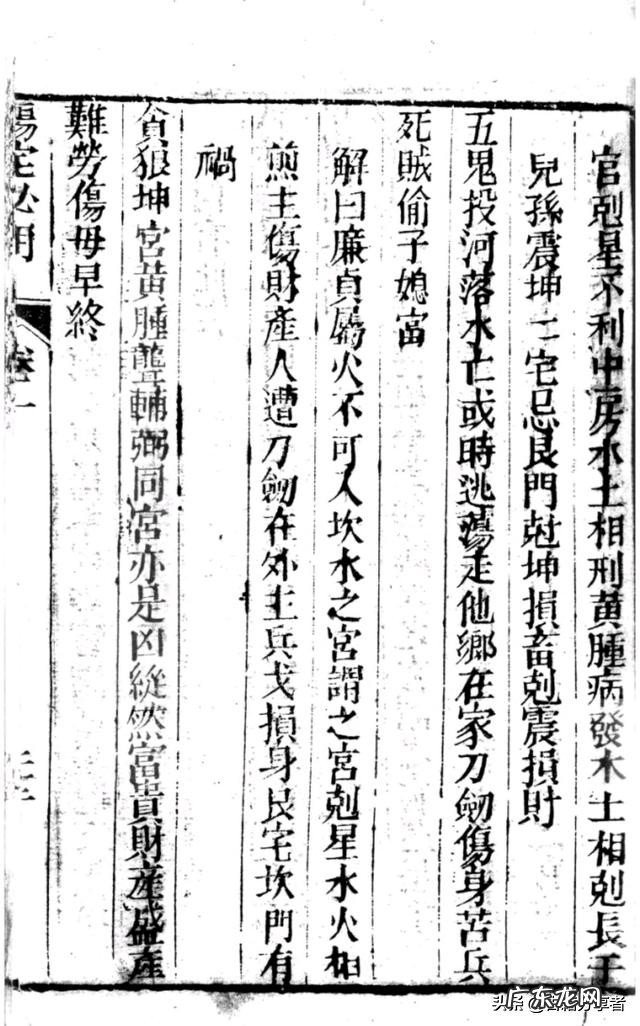 官剋星不利中房水土相刑黃腫病發木土相剋長子
兒孫震坤二宅忌艮門尅坤損畜剋震損財
五鬼投河落水亡或時逃蕩走他鄉在家刀劒傷身苦兵
死賊偷子媳富
解曰廉貞屬火不可入坎水之宮謂之宮剋星水火相
煎主傷財產人遭刀劒在外主兵戈損身艮宅坎門有
禍
貪狼坤宮黃腫聾輔弼同宮亦是凶縱然富貴財產盛產
難勞傷母早終
陽宅必用 卷一
广东龙网
头条